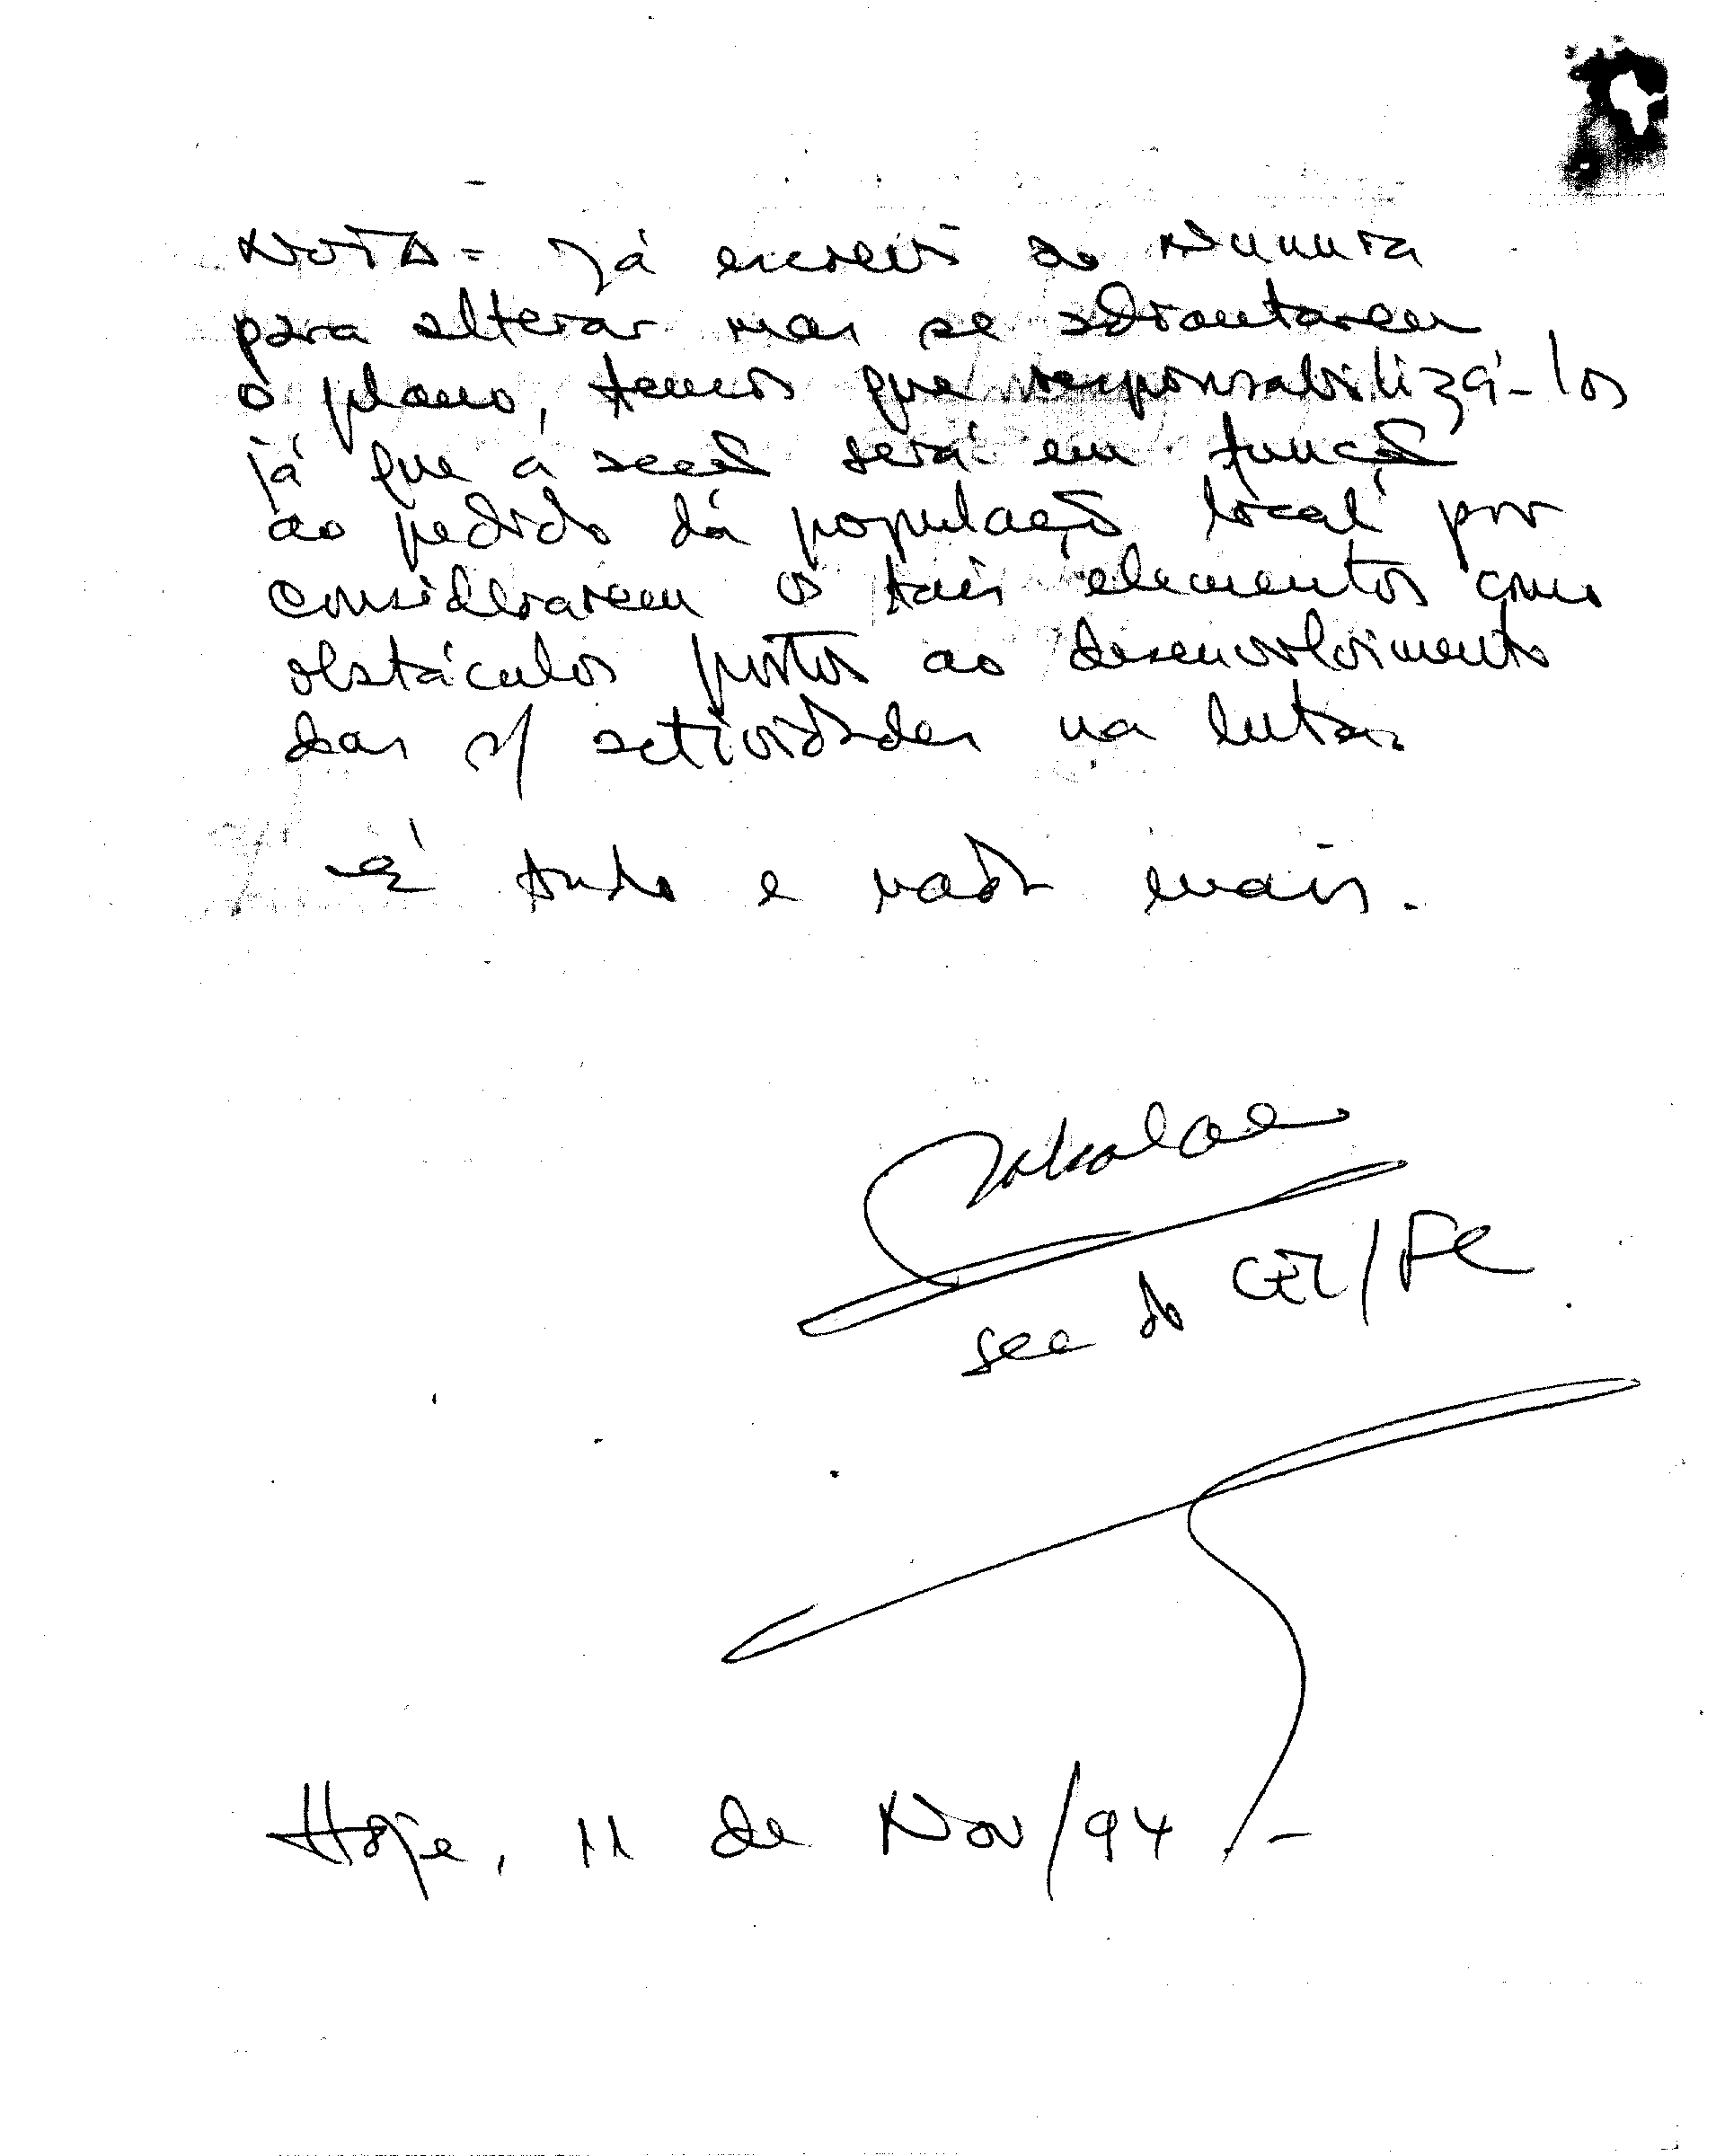 NOTA - Já escrevi ao Nunura
para alterar mas se adiantarem
o plano, temos que responsabilizá-los
já que a acção será em função
ao pedido dá população local por
considerarem os tais elementos como
obstáculos postos ao desenvolvimento
das s/ actividades na luta.
É tudo e nada mais.
sec do CEL/FC
Hoje, 11 de Nov/94 -